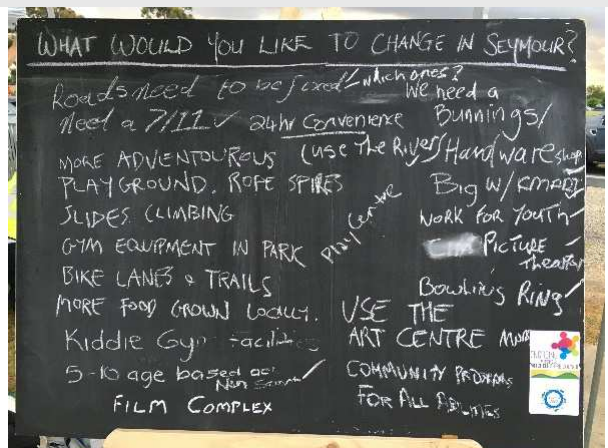 WHAT WOULD YOU LIKE TO CHANGE IN SEYMOUR?
Roads need to be fixed ✓ which ones?
Need a 7/11 ✓ 24hr Convenience
MORE ADVENTOUROUS
PLAYGROUND. ROPE SPIRES
SLIDES CLIMBING
GYM EQUIPMENT IN PARK
BIKE LANES & TRAILS
MORE FOOD GROWN LOCALLY.
Kiddie Gym Facilities
5-10 age based
FILM COMPLEX
(use The River)
Play Centre
We need a
Bunnings/
Hardware shop
Big W/KMART
WORK FOR YOUTH
PICTURE
Theatre
Bowling Ring ✓
USE THE
ART CENTRE MORE
COMMUNITY PROGRAMS
FOR ALL ABILITIES